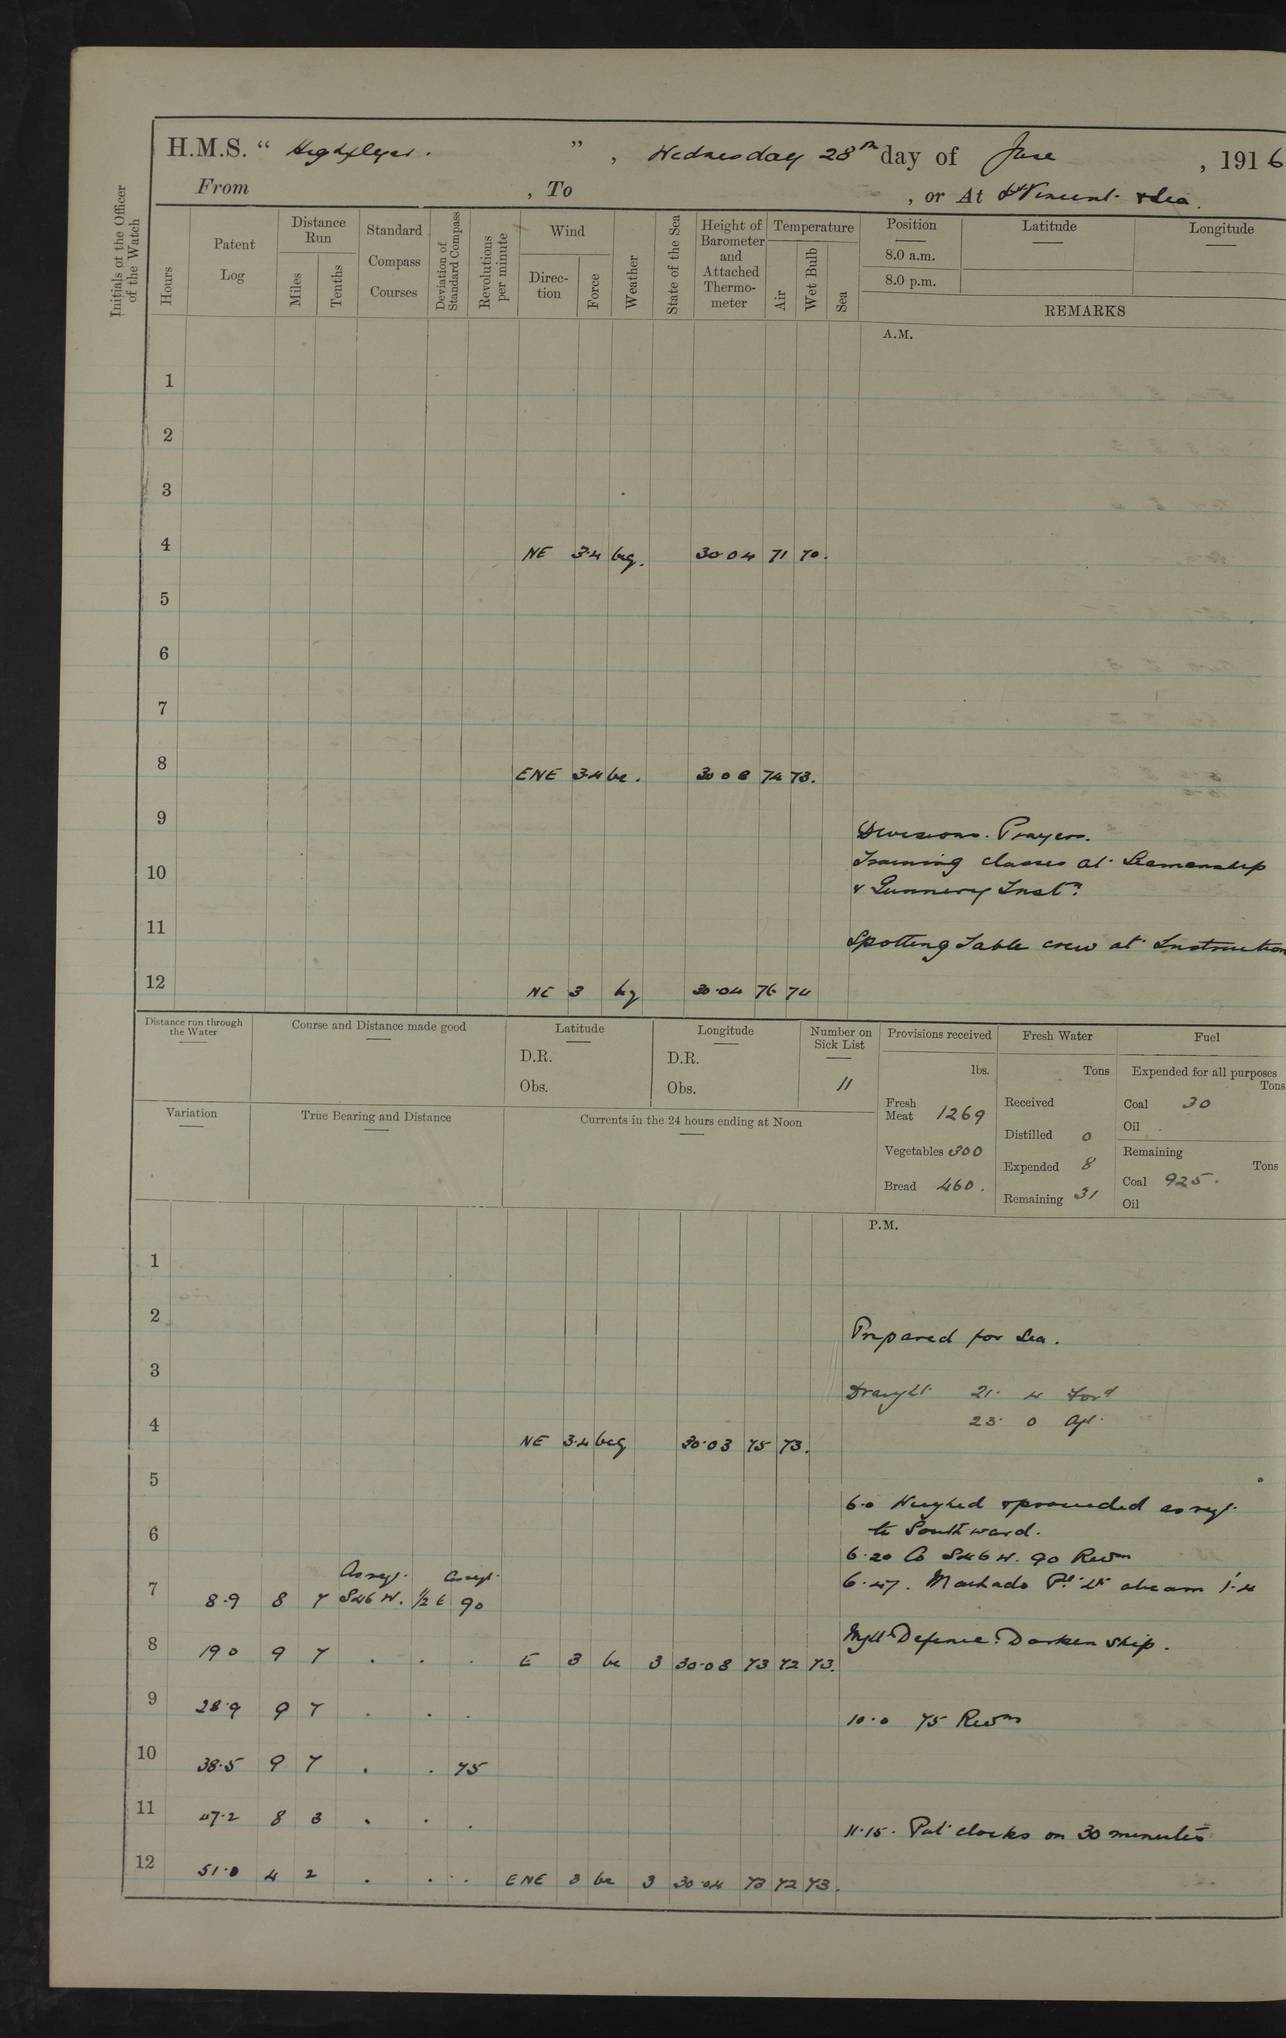 H.M.S. “ Highflyer. ” , Wednesday 28th day of June , 1916
From , To , or At St Vincent & Sea.
Initials of the Officer of the Watch
Hours
Patent Log
Distance Run
Miles
Tenths
Standard Compass Courses
Deviation of Standard Compass
Revolutions per minute
Wind
Direc-tion
Force
Weather
State of the Sea
Height of Barometer and Attached Thermo-meter
Temperature
Air
Wet Bulb
Sea
Position
8.0 a.m.
8.0 p.m.
Latitude
Longitude
REMARKS
A.M.
1
2
3
4 NE 3.4 bcg. 30.04 71 70.
5
6
7
8 ENE 3.4 bc. 30 08 74 73.
9 Divisions. Prayers.
Training classes at Seamanship
10
& Gunnery Instn.
11 Spotting Table crew at Instruction
12 NE 3 bg 30.04 76 74
Distance run through the Water
Course and Distance made good
Latitude
D.R.
Obs.
Longitude
D.R.
Obs.
Number on Sick List
11
Provisions received
lbs.
Fresh Meat 1269
Vegetables 300
Bread 460.
Fresh Water
Tons
Received
Distilled 0
Expended 8
Remaining 31
Fuel
Expended for all purposes
Tons
Coal 30
Oil
Remaining
Tons
Coal 925.
Oil
Variation
True Bearing and Distance
Currents in the 24 hours ending at Noon
P.M.
1
2 Prepared for Sea.
3 Draught 21. 4 Ford
23. 0 Aft.
4 NE 3.4 bcg 30.03 75 73.
5
6.0 Weighed & proceeded as req.
6 to Southward.
6.20 Co S46W. 90 Revns
As req. As req.
6.47. Machado Pt. Lt abeam 1'.4
7 8.9 8 7 S46W. ½ E 90
Night Defence. Darken Ship.
8 19 0 9 7 . . . E 3 bc 3 30.08 73 72 73.
9 28.9 9 7 . . .
10.0 75 Revns
10 38.5 9 7 . . 75
11 47.2 8 3 . . .
11.15. Put clocks on 30 minutes
12 51.0 4 2 . . . ENE 3 bc 3 30.04 73 72 73.